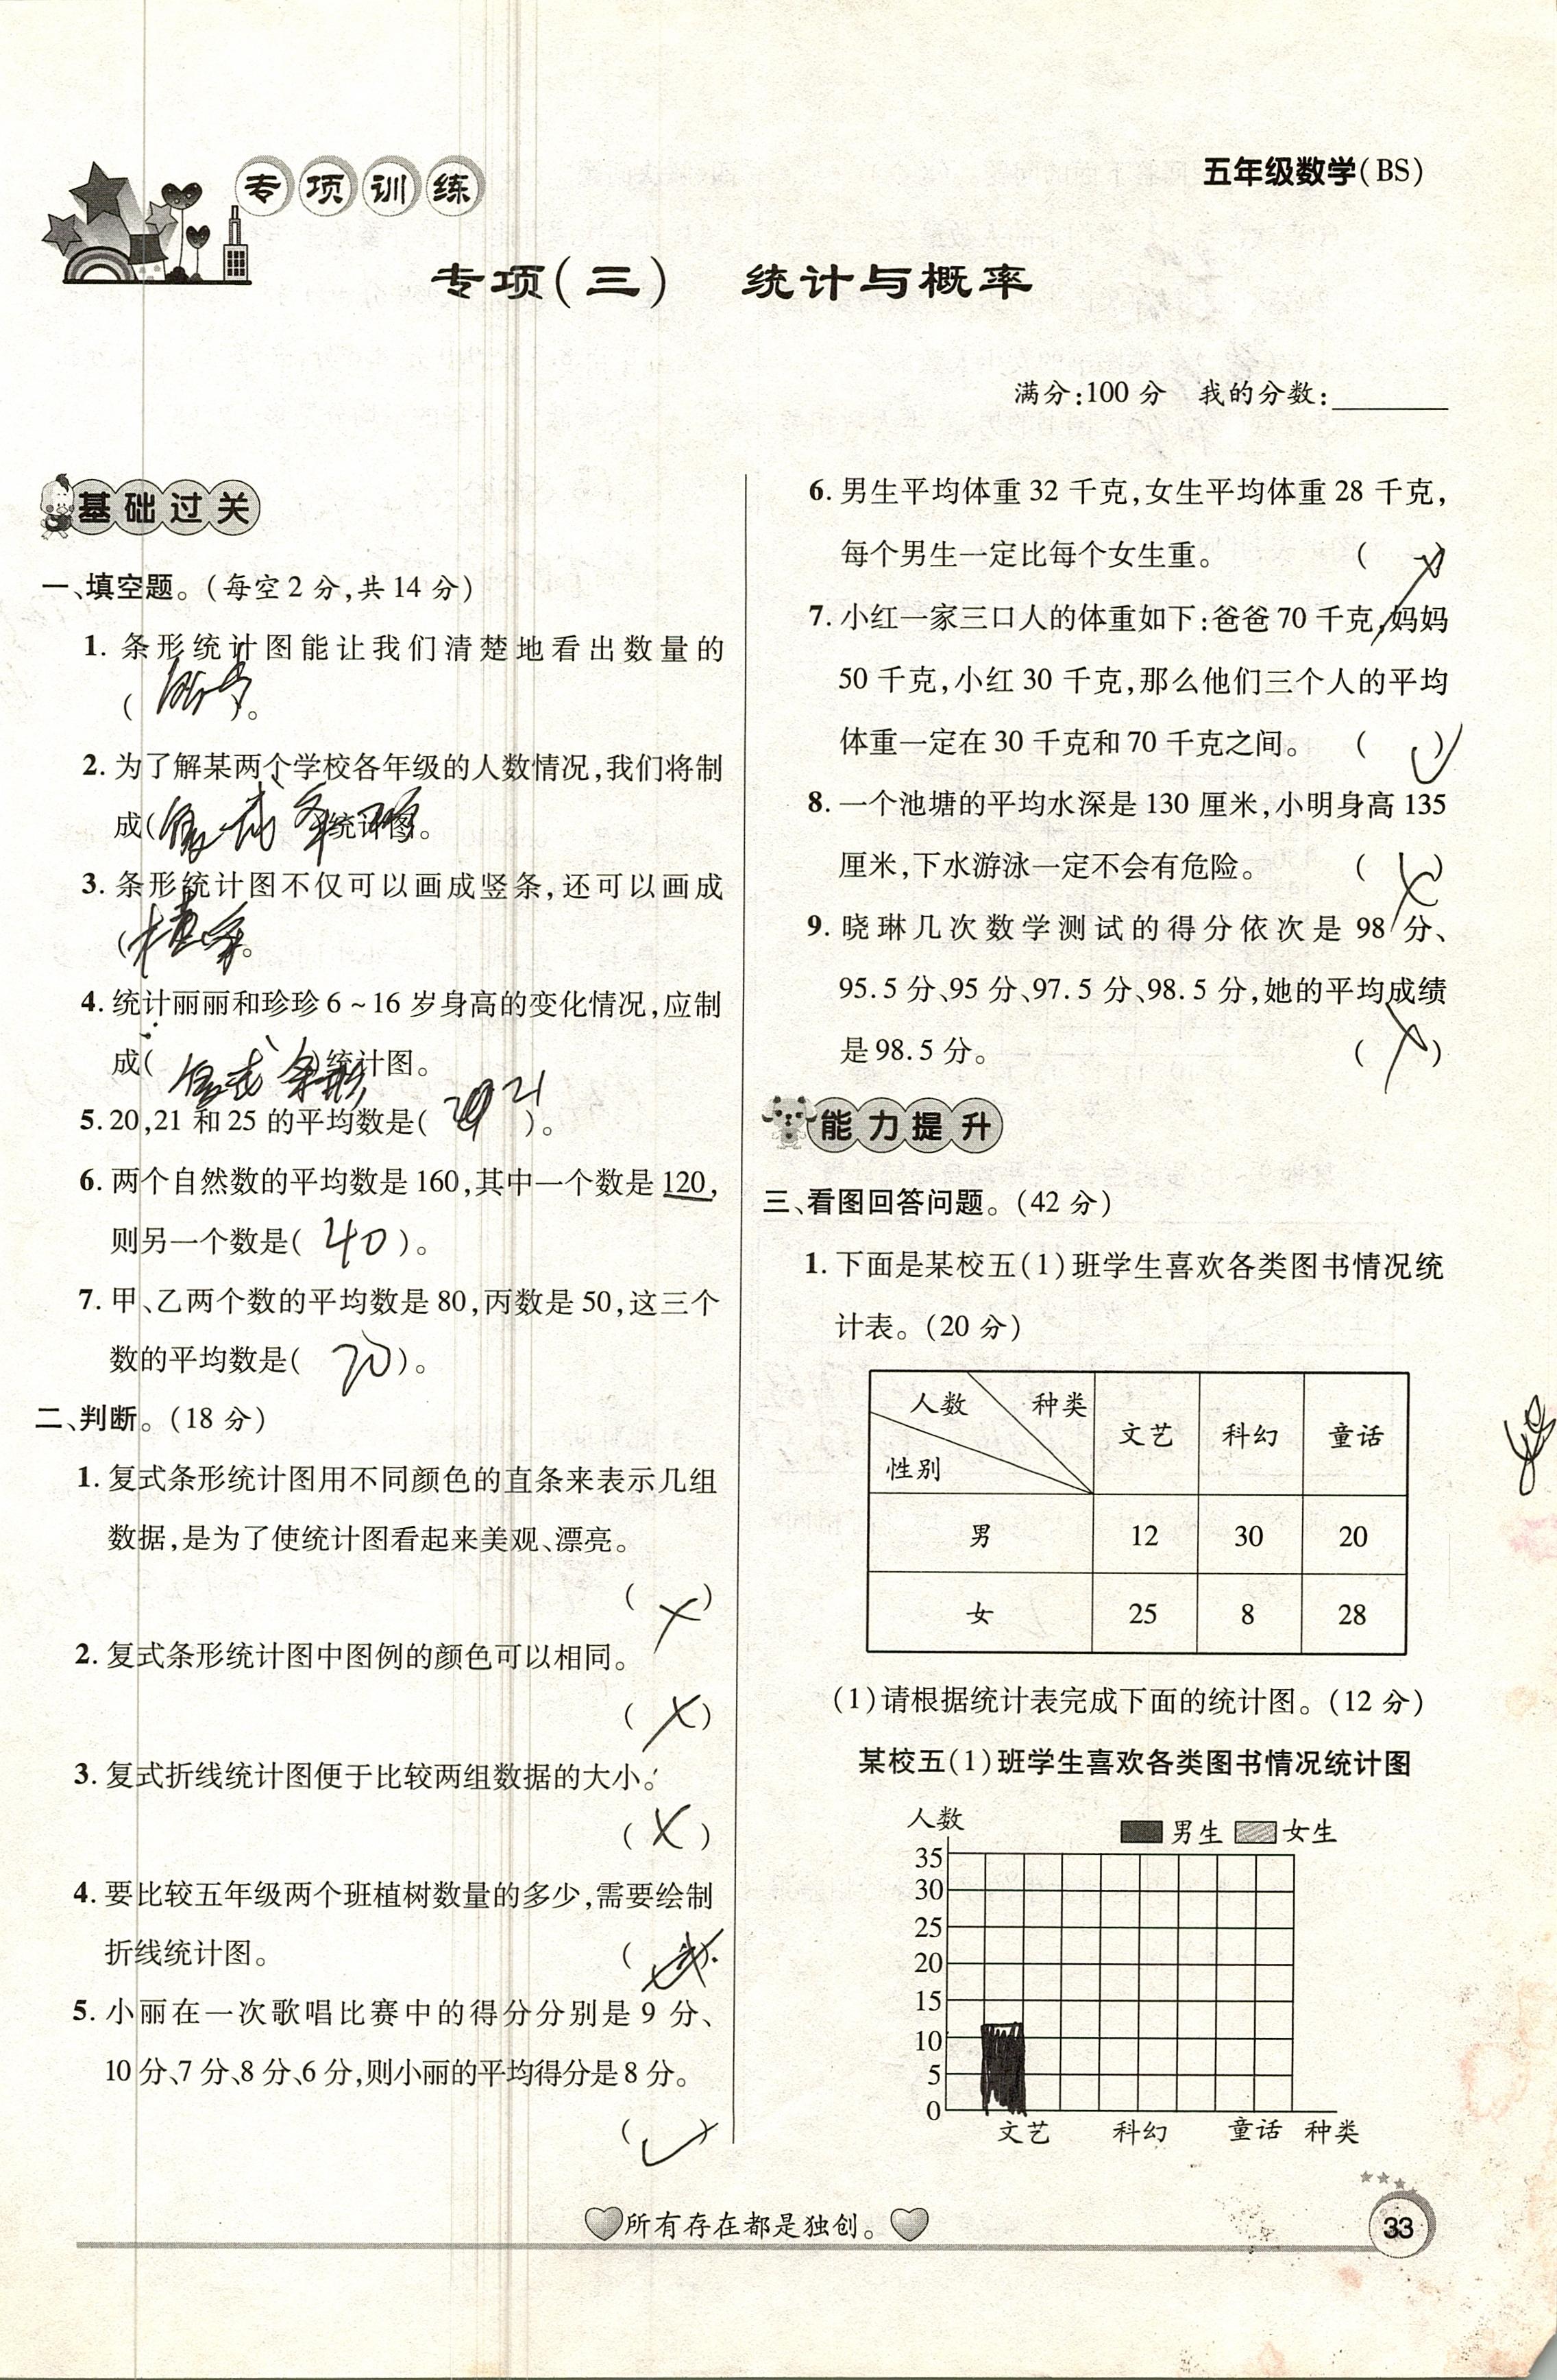 专项训练
五年级数学(BS)
专项(三) 统计与概率
满分:100 分 我的分数:
基础过关
一、填空题。(每空2分,共14分)
1. 条形统计图能让我们清楚地看出数量的
( )。
2. 为了解某两个学校各年级的人数情况,我们将制
成(复式条形)统计图。
3. 条形统计图不仅可以画成竖条,还可以画成
(横条)。
4. 统计丽丽和珍珍6~16岁身高的变化情况,应制
成(复式条形)统计图。
5. 20,21和25的平均数是( 21 )。
6. 两个自然数的平均数是160,其中一个数是120,
则另一个数是( 40 )。
7. 甲、乙两个数的平均数是80,丙数是50,这三个
数的平均数是( 70 )。
二、判断。(18分)
1. 复式条形统计图用不同颜色的直条来表示几组
数据,是为了使统计图看起来美观、漂亮。
( × )
2. 复式条形统计图中图例的颜色可以相同。
( × )
3. 复式折线统计图便于比较两组数据的大小。
( × )
4. 要比较五年级两个班植树数量的多少,需要绘制
折线统计图。 ( )
5. 小丽在一次歌唱比赛中的得分分别是9分、
10分、7分、8分、6分,则小丽的平均得分是8分。
( ✓ )
6. 男生平均体重32千克,女生平均体重28千克,
每个男生一定比每个女生重。 ( × )
7. 小红一家三口人的体重如下:爸爸70千克,妈妈
50千克,小红30千克,那么他们三个人的平均
体重一定在30千克和70千克之间。 ( ✓ )
8. 一个池塘的平均水深是130厘米,小明身高135
厘米,下水游泳一定不会有危险。 ( × )
9. 晓琳几次数学测试的得分依次是98分、
95.5分、95分、97.5分、98.5分,她的平均成绩
是98.5分。 ( × )
能力提升
三、看图回答问题。(42分)
1. 下面是某校五(1)班学生喜欢各类图书情况统
计表。(20分)
人数 种类 性别 文艺 科幻 童话
男 12 30 20
女 25 8 28
(1)请根据统计表完成下面的统计图。(12分)
某校五(1)班学生喜欢各类图书情况统计图
人数
男生 女生
35
30
25
20
15
10
5
0
文艺 科幻 童话 种类
所有存在都是独创。
33